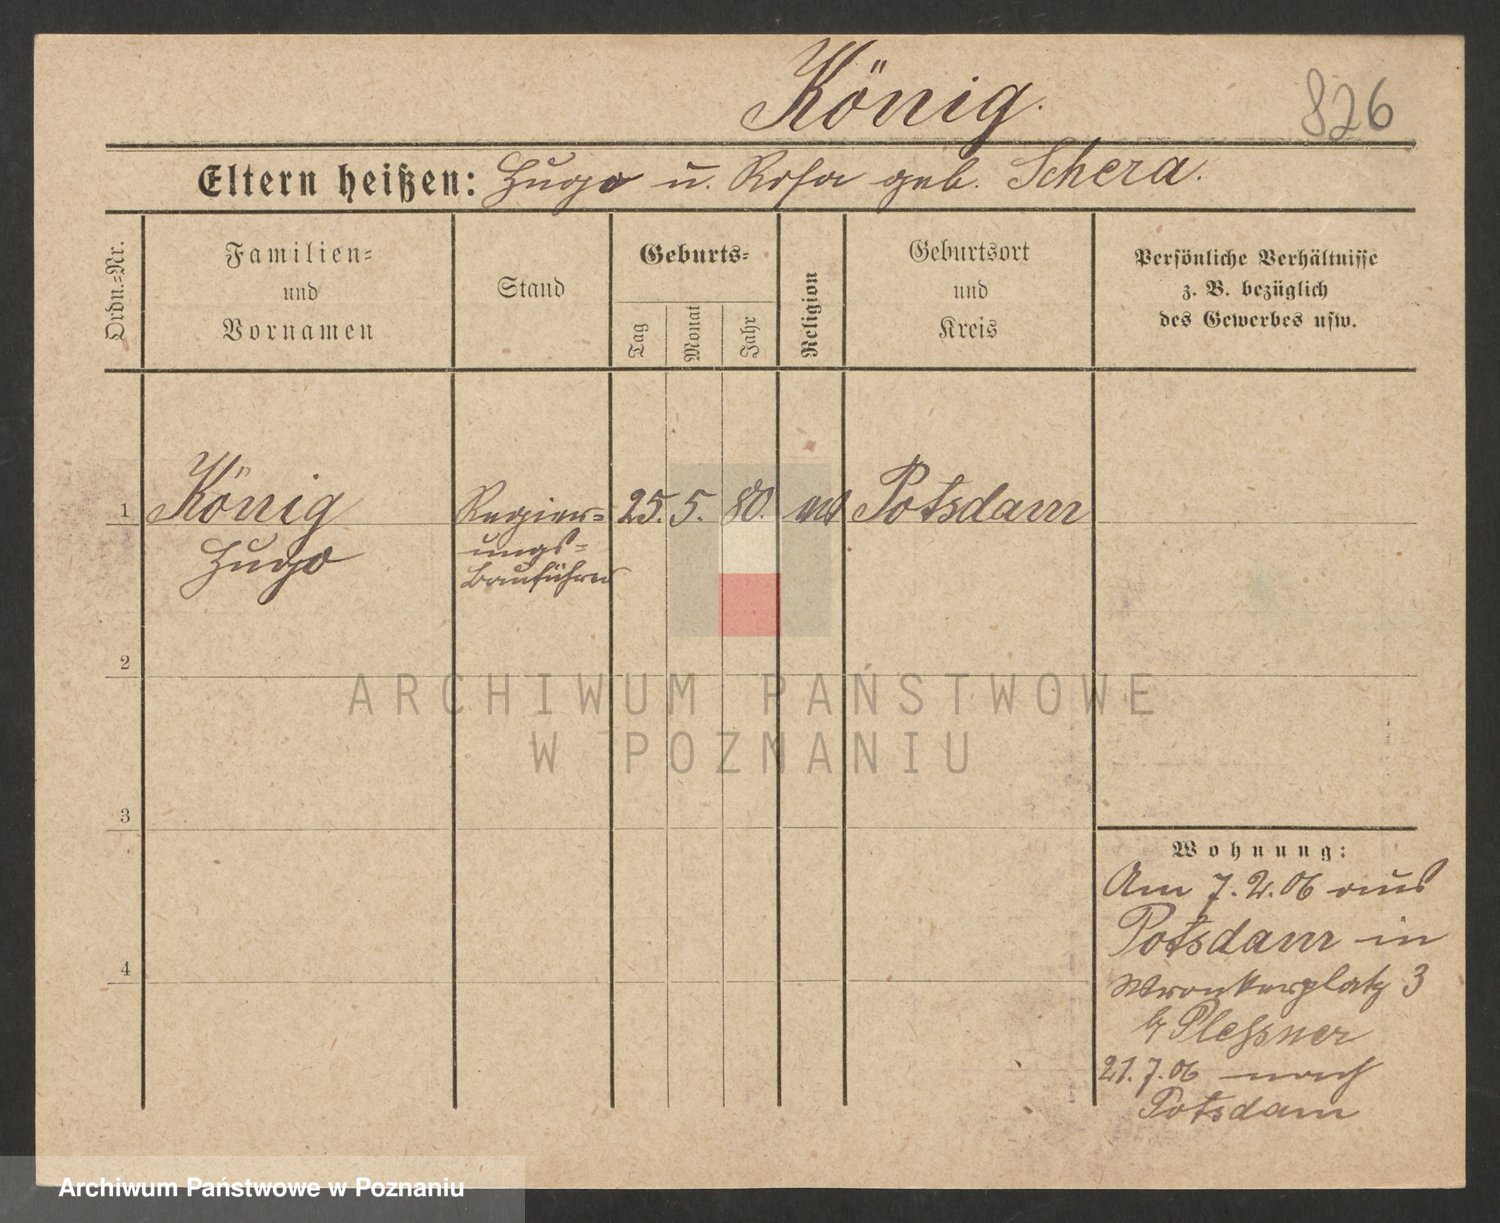 König.
826
Eltern heißen: Hugo u. Rosa geb. Schera.
Ordn.=Nr.
Familien=
und
Vornamen
Stand
Geburts=
Tag
Monat
Jahr
Religion
Geburtsort
und
Kreis
Persönliche Verhältnisse
z. B. bezüglich
des Gewerbes usw.
1 König Regier= 25. 5. 80. Potsdam
Hugo
ungs=
Bauführer
2
3
4
Wohnung:
Am 7.2.06 aus
Potsdam in
Wronkerplatz 3
b/ Plessner
21.7.06 nach
Potsdam
ARCHIWUM PAŃSTWOWE
W POZNANIU
Archiwum Państwowe w Poznaniu